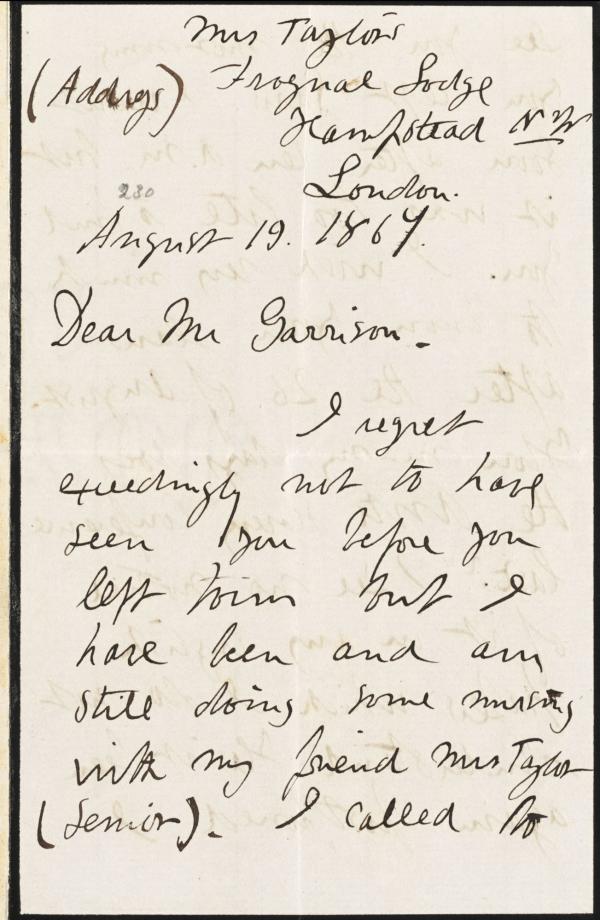 Mrs Taylor's
(Address) Frognal Lodge
Hampstead N.W
London.
230
August 19. 1867.
Dear Mr Garrison -
I regret
exceedingly not to have
seen you before you
left town but I
have been and am
still doing some nursing
with my friend Mrs Taylor
(Senior). I called to